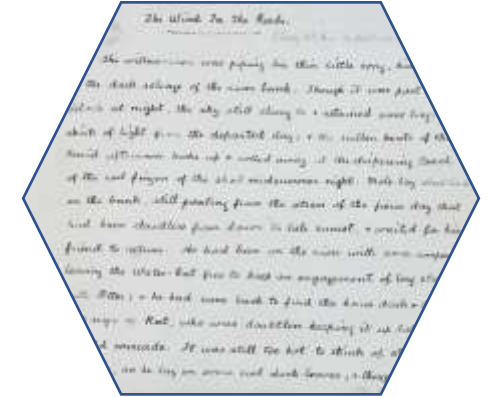 The Wind In The Reeds.
The willow-wren was piping his thin little song,
the dark selvage of the river bank. Though it was past
at night, the sky still clung to + retained some
skirts of light from the departed day; + the sullen heats of the
torrid afternoon broke up + rolled away at the dispersing touch
of the cool fingers of the short midsummer night. Mole lay
on the bank, still panting from the stress of the fierce day that
had been cloudless from dawn to late sunset, + waited for his
friend to return. He had been on the river with some
leaving the Water Rat free to keep an engagement of long
Otter; + he had come back to find the house dark +
Rat, who was doubtless keeping it up
comrade. It was still too hot to think of
as he lay on some cool dock leaves, +